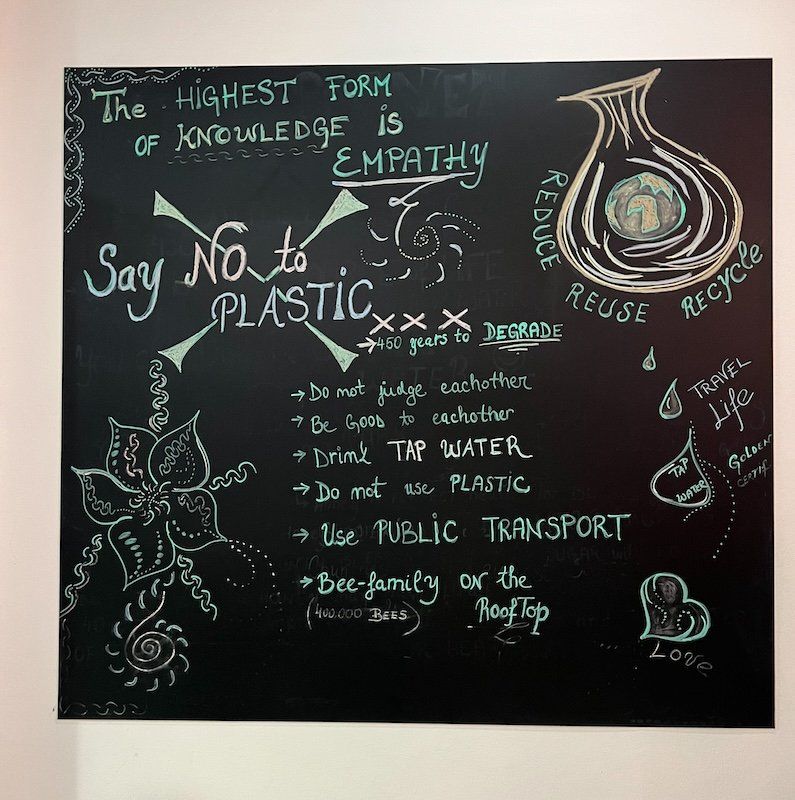 The HIGHEST FORM
OF KNOWLEDGE is
EMPATHY
Say NO to
PLASTIC
XXX
→ 450 years to DEGRADE
→ Do not judge eachother
→ Be GOOD to eachother
→ Drink TAP WATER
→ Do not use PLASTIC
→ Use PUBLIC TRANSPORT
→ Bee-family on the
(400.000 BEES) RoofTop
REDUCE
REUSE
RECYCLE
TRAVEL
Life
GOLDEN
TAP
WATER
LOVE